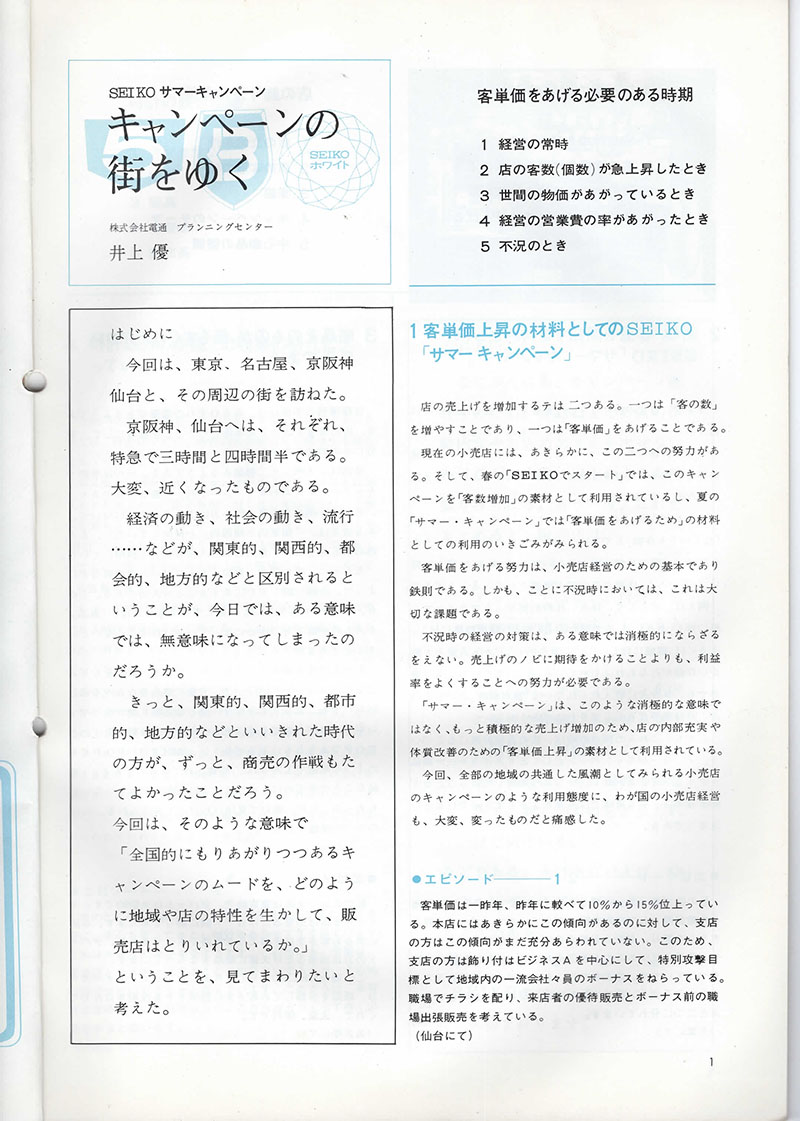 SEIKO サマーキャンペーン
キャンペーンの
街をゆく
SEIKO
ホワイト
株式会社電通 プランニングセンター
井上 優
客単価をあげる必要のある時期
1 経営の常時
2 店の客数(個数)が急上昇したとき
3 世間の物価があがっているとき
4 経営の営業費の率があがったとき
5 不況のとき
はじめに
今回は、東京、名古屋、京阪神
仙台と、その周辺の街を訪ねた。
京阪神、仙台へは、それぞれ、
特急で三時間と四時間半である。
大変、近くなったものである。
経済の動き、社会の動き、流行
……などが、関東的、関西的、都
会的、地方的などと区別されると
いうことが、今日では、ある意味
では、無意味になってしまったの
だろうか。
きっと、関東的、関西的、都市
的、地方的などといいきれた時代
の方が、ずっと、商売の作戦もた
てよかったことだろう。
今回は、そのような意味で
「全国的にもりあがりつつあるキ
ャンペーンのムードを、どのよう
に地域や店の特性を生かして、販
売店はとりいれているか。」
ということを、見てまわりたいと
考えた。
1 客単価上昇の材料としてのSEIKO
「サマー キャンペーン」
店の売上げを増加するテは 二つある。一つは「客の数」
を増やすことであり、一つは「客単価」をあげることである。
現在の小売店には、あきらかに、この二つへの努力があ
る。そして、春の「SEIKOでスタート」では、このキャン
ペーンを「客数増加」の素材として利用されているし、夏の
「サマー・キャンペーン」では「客単価をあげるため」の材料
としての利用のいきごみがみられる。
客単価をあげる努力は、小売店経営のための基本であり
鉄則である。しかも、ことに不況時においては、これは大
切な課題である。
不況時の経営の対策は、ある意味では消極的にならざる
をえない。売上げのノビに期待をかけることよりも、利益
率をよくすることへの努力が必要である。
「サマー・キャンペーン」は、このような消極的な意味で
はなく、もっと積極的な売上げ増加のため、店の内部充実や
体質改善のための「客単価上昇」の素材として利用されている。
今回、全部の地域の共通した風潮としてみられる小売店
のキャンペーンのような利用態度に、わが国の小売店経営
も、大変、変ったものだと痛感した。
●エピソード――――1
客単価は一昨年、昨年に較べて10%から15%位上ってい
る。本店にはあきらかにこの傾向があるのに対して、支店
の方はこの傾向がまだ充分あらわれていない。このため、
支店の方は飾り付はビジネスAを中心にして、特別攻撃目
標として地域内の一流会社々員のボーナスをねらっている。
職場でチラシを配り、来店者の優待販売とボーナス前の職
場出張販売を考えている。
(仙台にて)
1